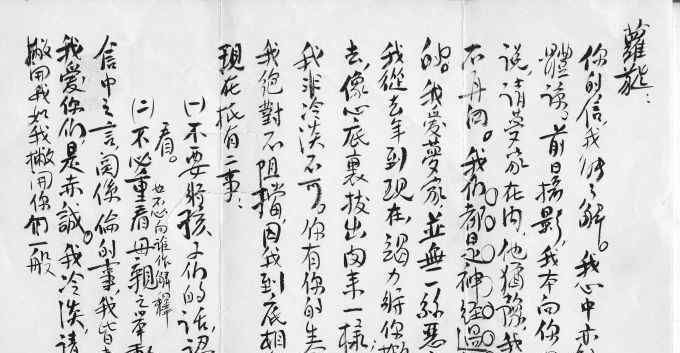 蘿蔙：
你的信，我能了解。我心中亦
體諒。前日攝影，我本向你
說，請夢家在內，他猶豫，我
不再向。我們都是神經過
的。我愛夢家，並無一絲惡
我從去年到現在，竭力將你
去，像心底裏拔出肉來一樣
我非冷淡不可，你有你的生
我絕對不阻擋，因我到底相
現在祇有二事：
（一）不要將孩子们的話，認
看。也不必向誰作解釋
（二）不必重看母親之舉動
信中之言，関係倫的事，我皆
我爱你们，是赤誠。我冷淡，請
撇開我如我撇開你们一般